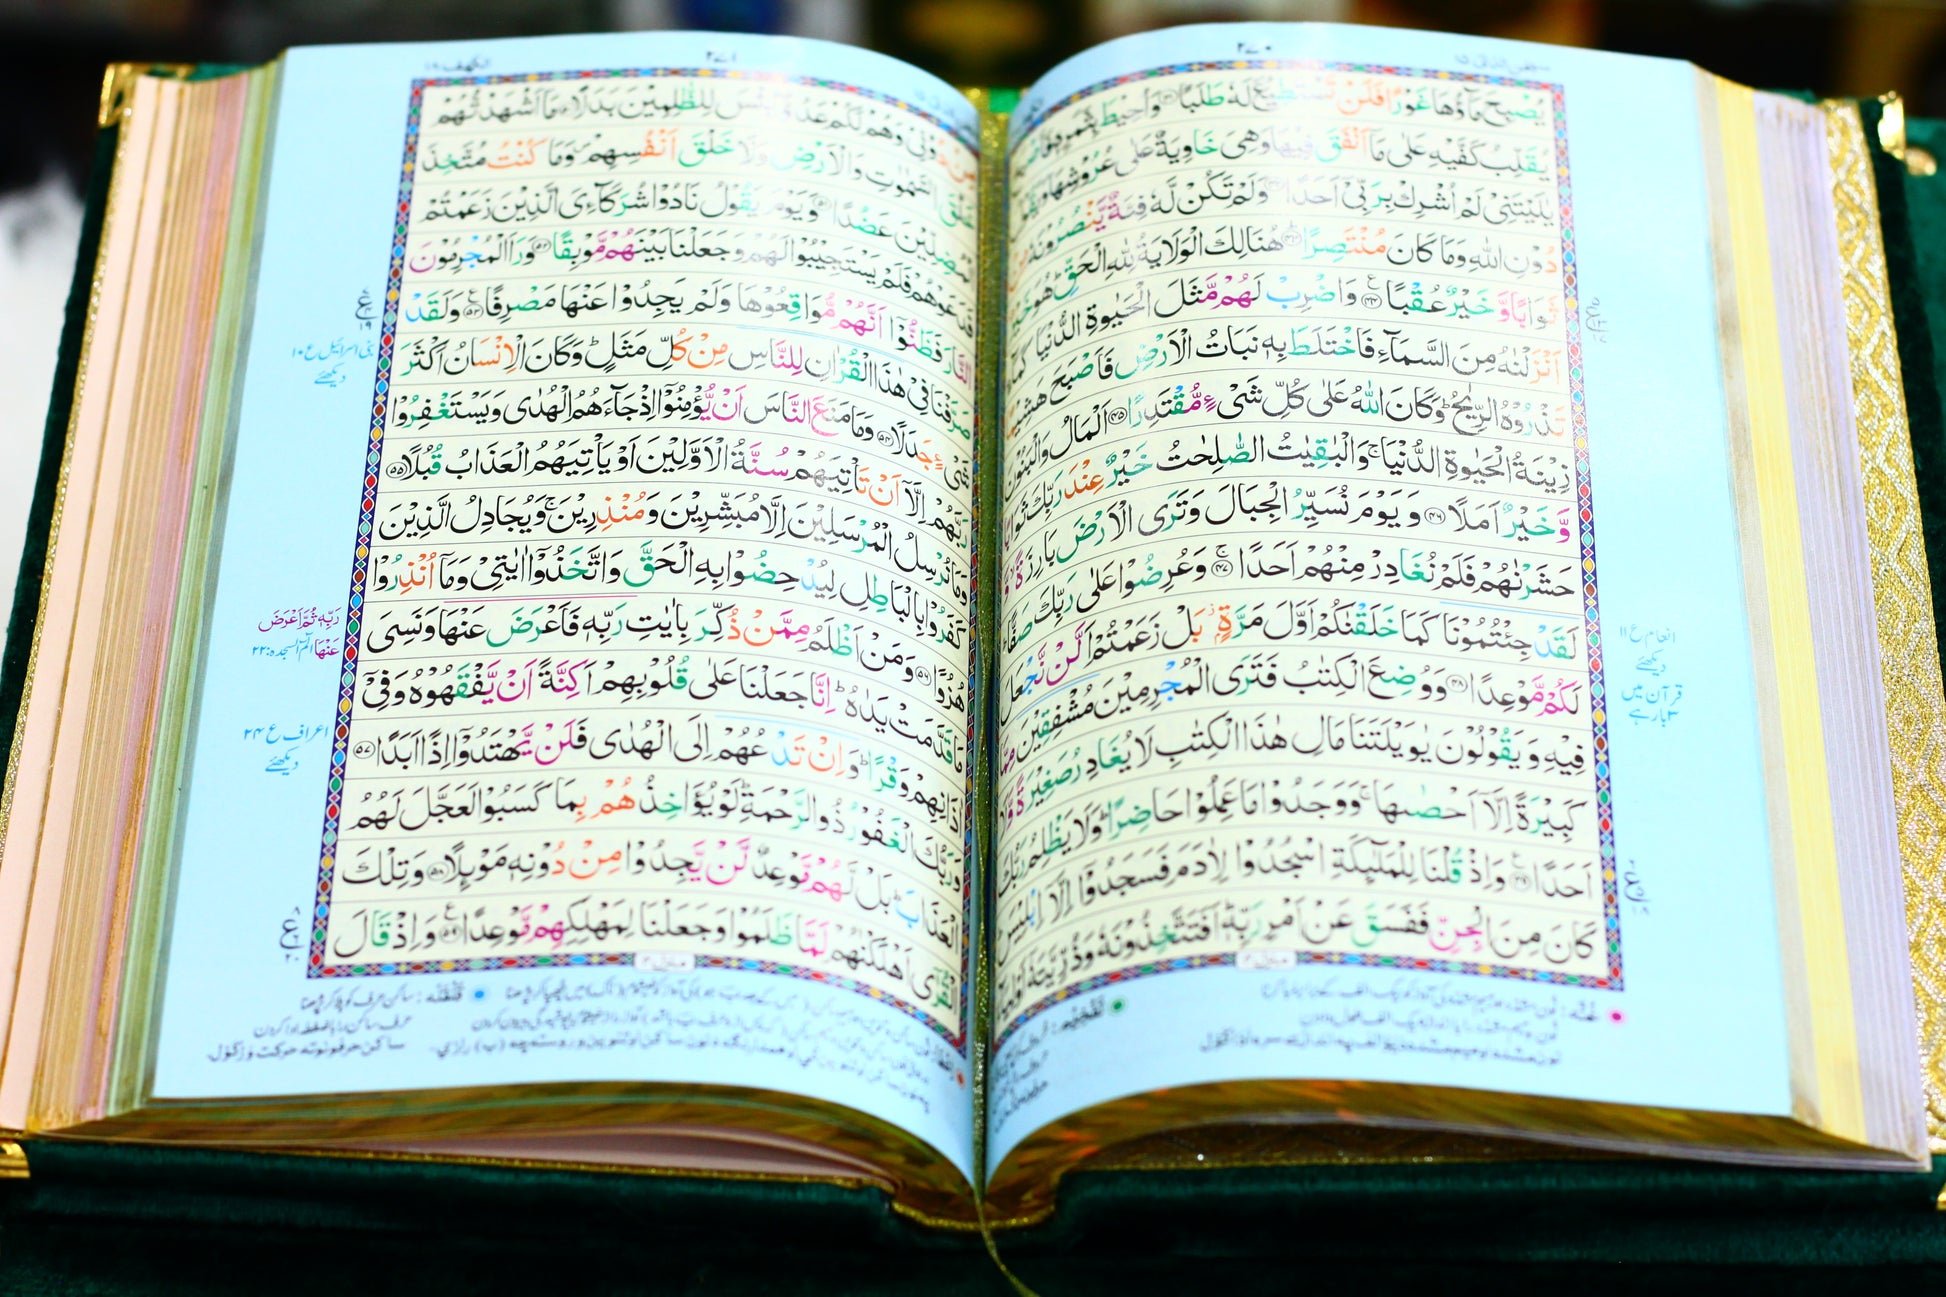 ٢٧٠
يُصْبِحَ مَآؤُهَا غَوْرًا فَلَنْ تَسْتَطِيْعَ لَهٗ طَلَبًا ﴿٤١﴾ وَاُحِيْطَ بِثَمَرِهٖ
يُقَلِّبُ كَفَّيْهِ عَلٰى مَاۤ اَنْفَقَ فِيْهَا وَهِىَ خَاوِيَةٌ عَلٰى عُرُوْشِهَا وَيَقُوْلُ
يٰلَيْتَنِىْ لَمْ اُشْرِكْ بِرَبِّىْۤ اَحَدًا ﴿٤٢﴾ وَلَمْ تَكُنْ لَّهٗ فِئَةٌ يَّنْصُرُوْنَهٗ مِنْ
دُوْنِ اللّٰهِ وَمَا كَانَ مُنْتَصِرًا ﴿٤٣﴾ هُنَالِكَ الْوَلَايَةُ لِلّٰهِ الْحَقِّ ؕ هُوَ خَيْرٌ
ثَوَابًا وَّ خَيْرٌ عُقْبًا ﴿٤٤﴾ وَاضْرِبْ لَهُمْ مَّثَلَ الْحَيٰوةِ الدُّنْيَا كَمَآءٍ
اَنْزَلْنٰهُ مِنَ السَّمَآءِ فَاخْتَلَطَ بِهٖ نَبَاتُ الْاَرْضِ فَاَصْبَحَ هَشِيْمًا
تَذْرُوْهُ الرِّيٰحُ ؕ وَكَانَ اللّٰهُ عَلٰى كُلِّ شَىْءٍ مُّقْتَدِرًا ﴿٤٥﴾ اَلْمَالُ وَالْبَنُوْنَ
زِيْنَةُ الْحَيٰوةِ الدُّنْيَا ۚ وَالْبٰقِيٰتُ الصّٰلِحٰتُ خَيْرٌ عِنْدَ رَبِّكَ ثَوَابًا
وَّ خَيْرٌ اَمَلًا ﴿٤٦﴾ وَ يَوْمَ نُسَيِّرُ الْجِبَالَ وَتَرَى الْاَرْضَ بَارِزَةً ۙ وَّ
حَشَرْنٰهُمْ فَلَمْ نُغَادِرْ مِنْهُمْ اَحَدًا ۚ ﴿٤٧﴾ وَعُرِضُوْا عَلٰى رَبِّكَ صَفًّا ؕ
لَقَدْ جِئْتُمُوْنَا كَمَا خَلَقْنٰكُمْ اَوَّلَ مَرَّةٍۭ ۫ بَلْ زَعَمْتُمْ اَلَّنْ نَّجْعَلَ
لَكُمْ مَّوْعِدًا ﴿٤٨﴾ وَوُضِعَ الْكِتٰبُ فَتَرَى الْمُجْرِمِيْنَ مُشْفِقِيْنَ مِمَّا
فِيْهِ وَ يَقُوْلُوْنَ يٰوَيْلَتَنَا مَالِ هٰذَا الْكِتٰبِ لَا يُغَادِرُ صَغِيْرَةً وَّلَا
كَبِيْرَةً اِلَّاۤ اَحْصٰىهَا ۚ وَوَجَدُوْا مَا عَمِلُوْا حَاضِرًا ؕ وَلَا يَظْلِمُ رَبُّكَ
اَحَدًا ﴿٤٩﴾ وَاِذْ قُلْنَا لِلْمَلٰٓئِكَةِ اسْجُدُوْا لِاٰدَمَ فَسَجَدُوْۤا اِلَّاۤ اِبْلِيْسَ ؕ
كَانَ مِنَ الْجِنِّ فَفَسَقَ عَنْ اَمْرِ رَبِّهٖ ؕ اَفَتَتَّخِذُوْنَهٗ وَذُرِّيَّتَهٗۤ اَوْلِيَآءَ
منزل ٤
انعام ع ١١
دیکھئے
قرآن میں
٣ بار ہے
غُنَّه :
تَفْخِيْم :
الكهف ١٨
٢٧١
مِنْ دُوْنِىْ وَهُمْ لَكُمْ عَدُوٌّ ؕ بِئْسَ لِلظّٰلِمِيْنَ بَدَلًا ﴿٥٠﴾ مَاۤ اَشْهَدْتُّهُمْ
خَلْقَ السَّمٰوٰتِ وَالْاَرْضِ وَلَا خَلْقَ اَنْفُسِهِمْ ۪ وَمَا كُنْتُ مُتَّخِذَ
الْمُضِلِّيْنَ عَضُدًا ﴿٥١﴾ وَيَوْمَ يَقُوْلُ نَادُوْا شُرَكَآءِىَ الَّذِيْنَ زَعَمْتُمْ
فَدَعَوْهُمْ فَلَمْ يَسْتَجِيْبُوْا لَهُمْ وَجَعَلْنَا بَيْنَهُمْ مَّوْبِقًا ﴿٥٢﴾ وَرَاَ الْمُجْرِمُوْنَ
النَّارَ فَظَنُّوْۤا اَنَّهُمْ مُّوَاقِعُوْهَا وَلَمْ يَجِدُوْا عَنْهَا مَصْرِفًا ﴿٥٣﴾ وَلَقَدْ
صَرَّفْنَا فِىْ هٰذَا الْقُرْاٰنِ لِلنَّاسِ مِنْ كُلِّ مَثَلٍ ؕ وَكَانَ الْاِنْسَانُ اَكْثَرَ
شَىْءٍ جَدَلًا ﴿٥٤﴾ وَمَا مَنَعَ النَّاسَ اَنْ يُّؤْمِنُوْۤا اِذْ جَآءَهُمُ الْهُدٰى وَيَسْتَغْفِرُوْا
رَبَّهُمْ اِلَّاۤ اَنْ تَاْتِيَهُمْ سُنَّةُ الْاَوَّلِيْنَ اَوْ يَاْتِيَهُمُ الْعَذَابُ قُبُلًا ﴿٥٥﴾
وَمَا نُرْسِلُ الْمُرْسَلِيْنَ اِلَّا مُبَشِّرِيْنَ وَمُنْذِرِيْنَ ۚ وَيُجَادِلُ الَّذِيْنَ
كَفَرُوْا بِالْبَاطِلِ لِيُدْحِضُوْا بِهِ الْحَقَّ وَاتَّخَذُوْۤا اٰيٰتِىْ وَمَاۤ اُنْذِرُوْا
هُزُوًا ﴿٥٦﴾ وَمَنْ اَظْلَمُ مِمَّنْ ذُكِّرَ بِاٰيٰتِ رَبِّهٖ فَاَعْرَضَ عَنْهَا وَنَسِىَ
مَا قَدَّمَتْ يَدٰهُ ؕ اِنَّا جَعَلْنَا عَلٰى قُلُوْبِهِمْ اَكِنَّةً اَنْ يَّفْقَهُوْهُ وَفِىْۤ
اٰذَانِهِمْ وَقْرًا ؕ وَاِنْ تَدْعُهُمْ اِلَى الْهُدٰى فَلَنْ يَّهْتَدُوْۤا اِذًا اَبَدًا ﴿٥٧﴾
وَرَبُّكَ الْغَفُوْرُ ذُو الرَّحْمَةِ ؕ لَوْ يُؤَاخِذُهُمْ بِمَا كَسَبُوْا لَعَجَّلَ لَهُمُ
الْعَذَابَ ؕ بَلْ لَّهُمْ مَّوْعِدٌ لَّنْ يَّجِدُوْا مِنْ دُوْنِهٖ مَوْئِلًا ﴿٥٨﴾ وَتِلْكَ
الْقُرٰٓى اَهْلَكْنٰهُمْ لَمَّا ظَلَمُوْا وَجَعَلْنَا لِمَهْلِكِهِمْ مَّوْعِدًا ﴿٥٩﴾ وَاِذْ قَالَ
منزل ٤
بنی اسرائیل ع ١٠
دیکھئے
رَبِّهٖ ثُمَّ اَعْرَضَ
عَنْهَا الم السجدہ : ٢٢
اعراف ع ٢٤
دیکھئے
قَلْقَلَه : ساکن حرف کو ہلا کر پڑھنا